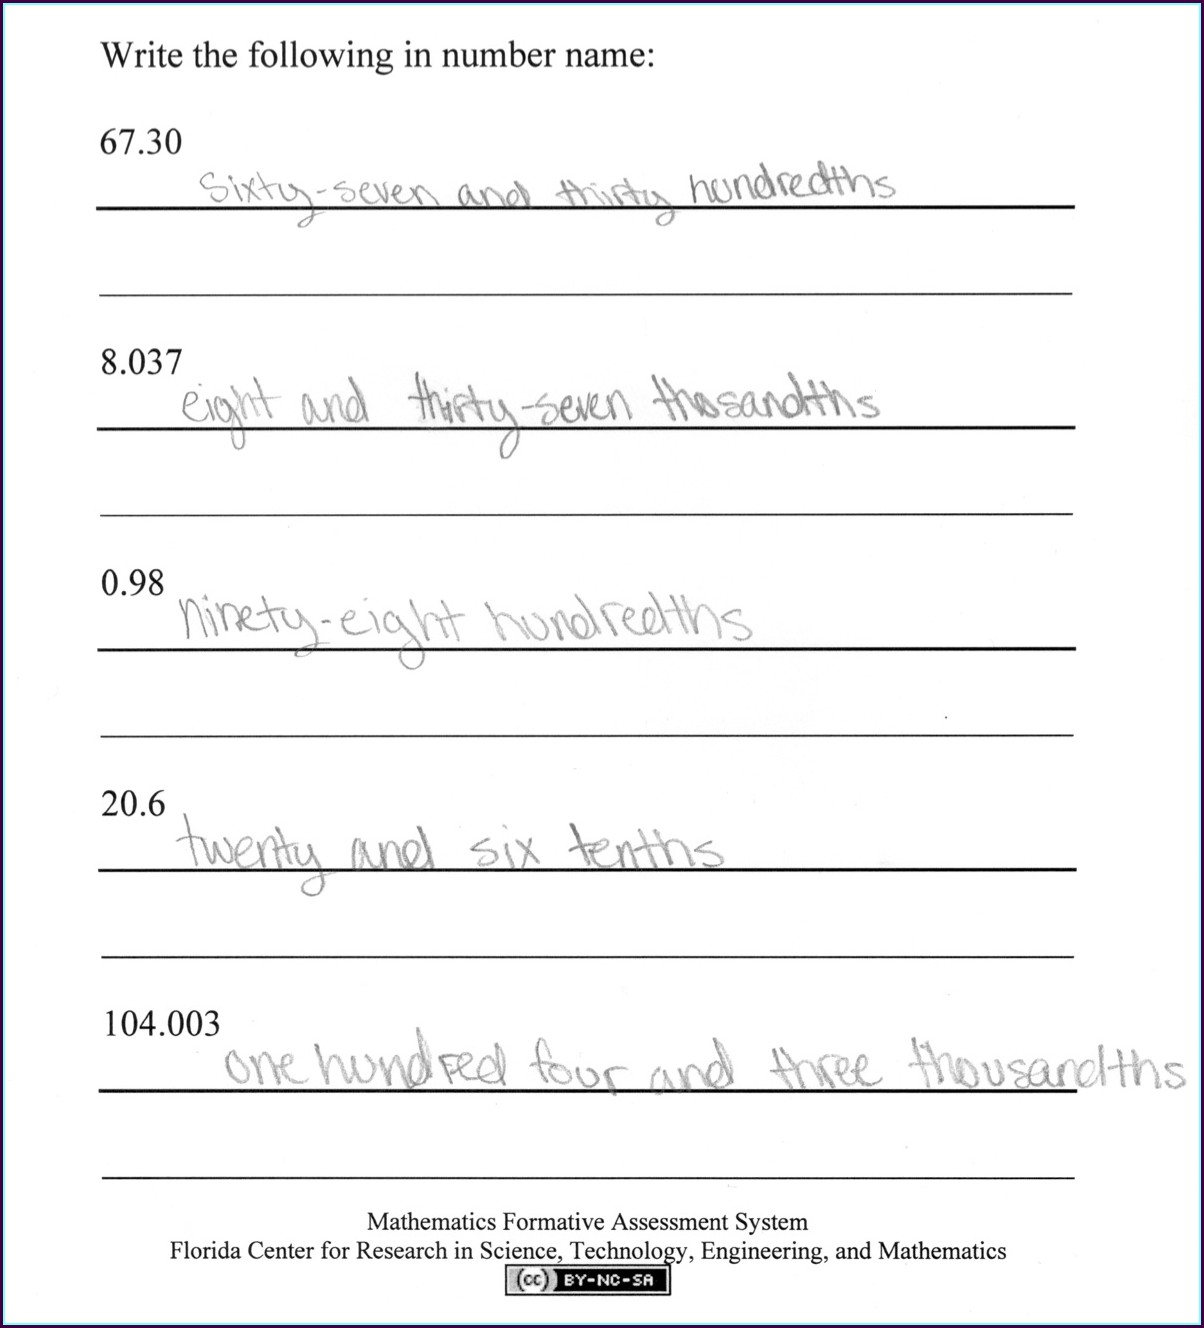 Write the following in number name:
67.30
Sixty-seven and thirty hundredths
8.037
eight and thirty-seven thosandths
0.98
ninety-eight hundredths
20.6
twenty and six tenths
104.003
one hundred four and three thousandths
Mathematics Formative Assessment System
Florida Center for Research in Science, Technology, Engineering, and Mathematics
(cc) BY-NC-SA